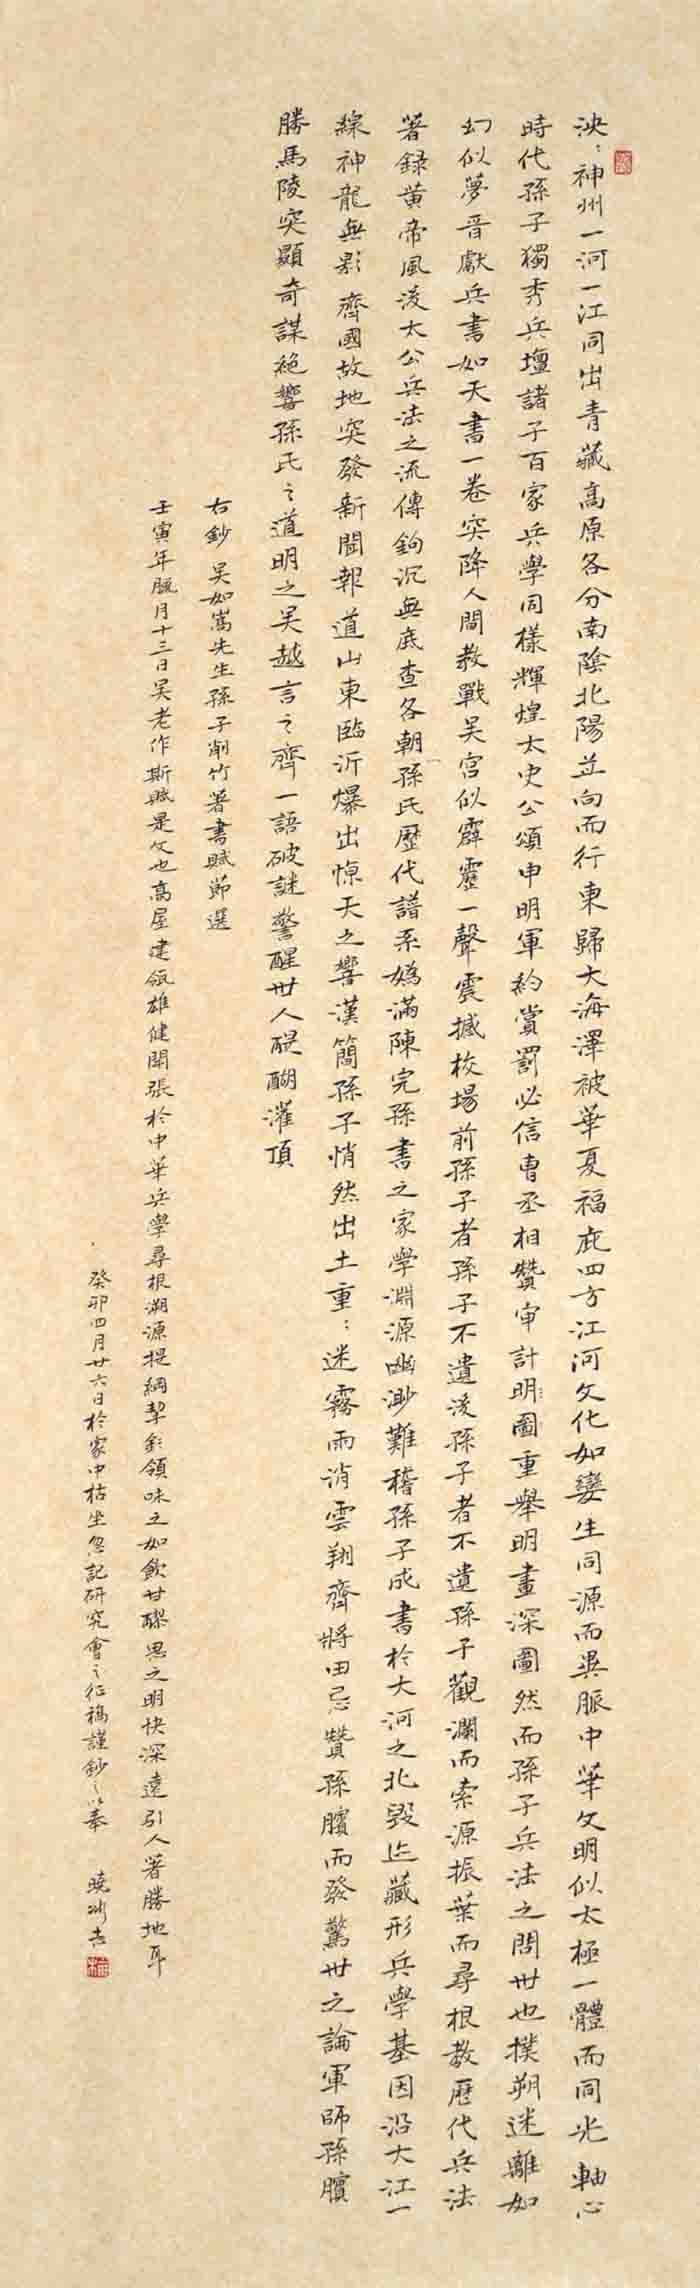 泱：神州一河一江同出青藏高原各分南陰北陽並向而行東歸大海澤被華夏福庇四方江河文化如孿生同源而異脈中華文明似太極一體而同光軸心
時代孫子獨秀兵壇諸子百家兵學同樣輝煌太史公頌申明軍約賞罰必信曹丞相贊审計明圖重舉明畫深圖然而孫子兵法之問世也撲朔迷離如
幻似夢晋獻兵書如天書一卷突降人間教戰吴宫似霹靂一聲震撼校場前孫子者孫子不遺後孫子者不遺孫子觀瀾而索源振葉而尋根教歷代兵法
著録黄帝風後太公兵法之流傳鉤沉無底查各朝孫氏歷代譜系媯滿陳完孫書之家學淵源幽渺難稽孫子成書於大河之北毁迄藏形兵學基因沿大江一
線神龍無影齊國故地突發新聞報道山東臨沂爆出惊天之響漢簡孫子悄然出土重：迷霧雨消雲翔齊將田忌贊孫臏而發驚世之論軍師孫臏
勝馬陵突顯奇謀絶響孫氏之道明之吴越言之齊一語破謎警醒世人醍醐灌頂
右鈔吴如嵩先生孫子削竹著書賦節選
壬寅年臘月十三日吴老作斯賦是文也高屋建瓴雄健開張於中華兵學尋根溯源提綱挈領味之如飲甘醪思之明快深遠引人著勝地耳
癸卯四月廿六日於家中枯坐忽記研究會之征稿謹鈔之以奉 曉